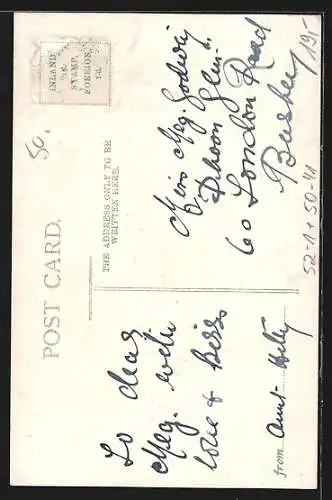 POST CARD.
INLAND
½d.
STAMP.
FOREIGN
1d.
THE ADDRESS ONLY TO BE
WRITTEN HERE.
To dear
Meg. with
love & Kisses
from Aunt
Miss Meg. Godwin
60 London Road
Bushey
50.
19,-
52-1 + 50-41